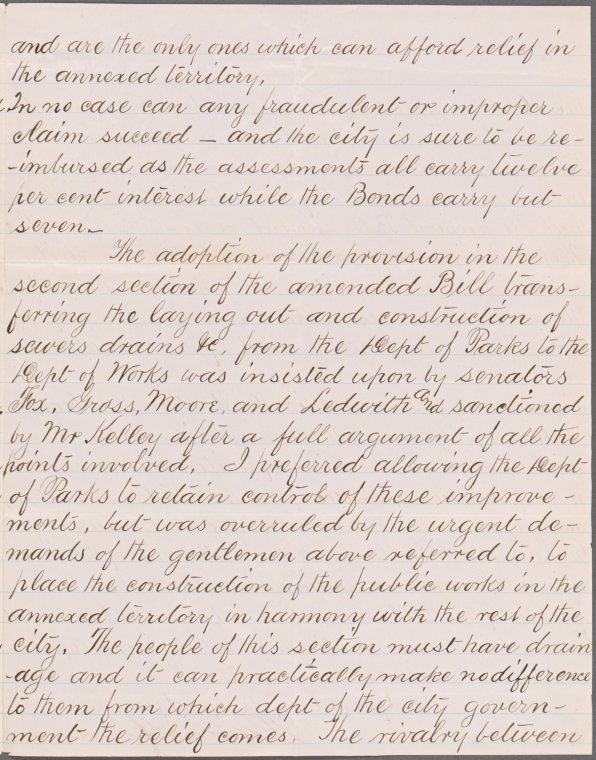 and are the only ones which can afford relief in
the annexed territory.
In no case can any fraudulent or improper
claim succeed — and the city is sure to be re-
-imbursed as the assessments all carry twelve
per cent interest while the Bonds carry but
seven—
The adoption of the provision in the
second section of the amended Bill trans-
ferring the laying out and construction of
sewers drains &c. from the Dept of Parks to the
Dept of Works was insisted upon by senators
Fox, Gross, Moore, and Ledwith and sanctioned
by Mr Kelley after a full argument of all the
points involved. I preferred allowing the Dept
of Parks to retain control of these improve-
ments, but was overruled by the urgent de-
mands of the gentlemen above referred to, to
place the construction of the public works in the
annexed territory in harmony with the rest of the
city. The people of this section must have drain
-age and it can practically make no difference
to them from which dept of the city govern-
ment the relief comes. The rivalry between